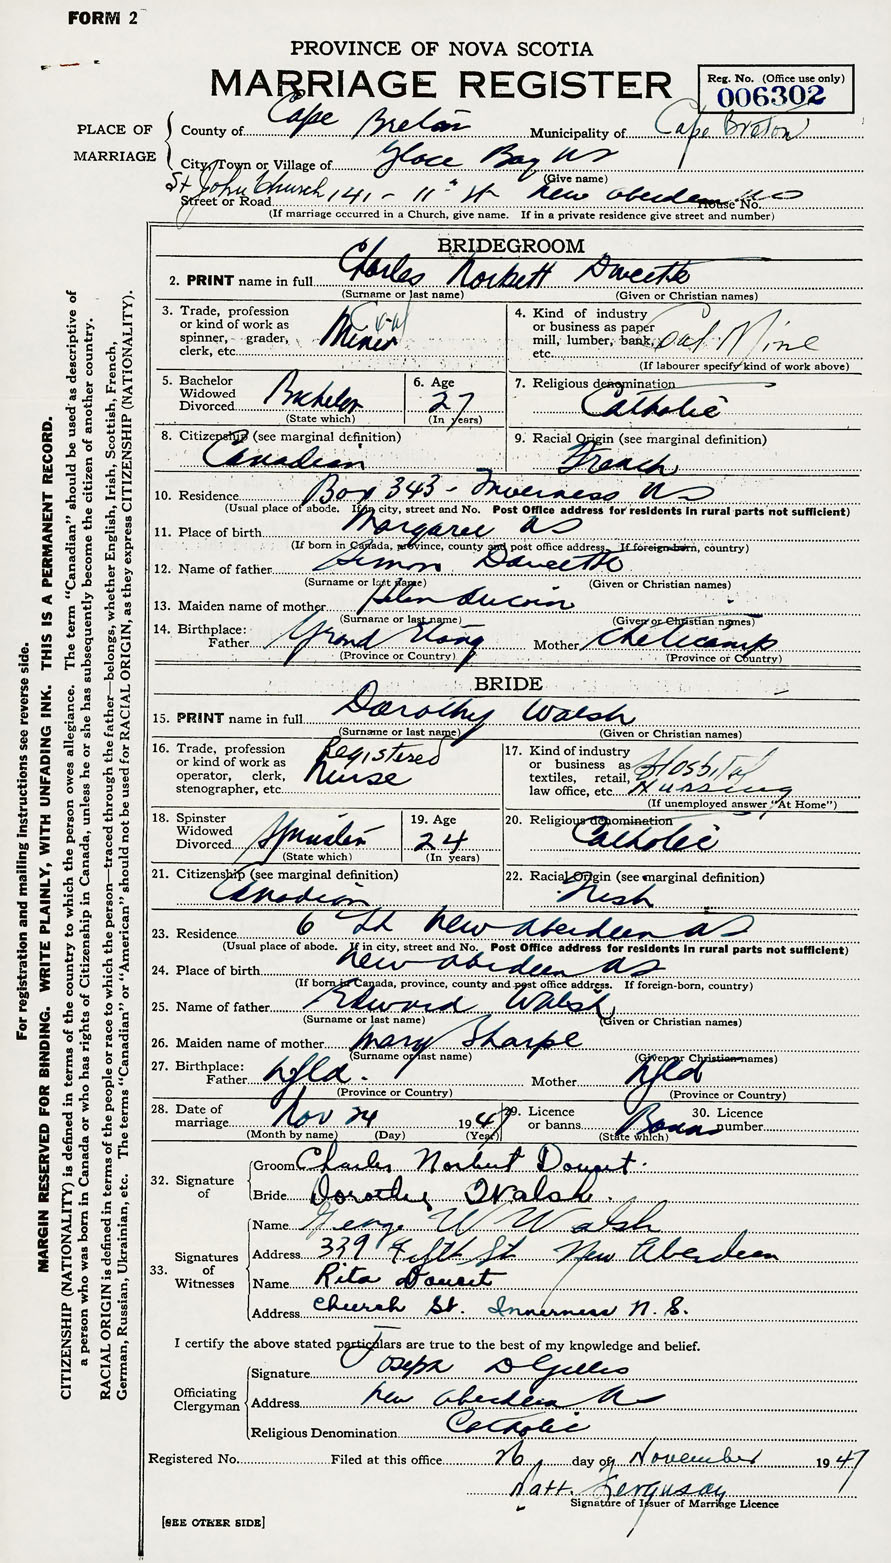 FORM 2
PROVINCE OF NOVA SCOTIA
MARRIAGE REGISTER
Reg. No. (Office use only)
006302
PLACE OF MARRIAGE
County of Cape Breton Municipality of Cape Breton
City, Town or Village of Glace Bay NS
(Give name)
St John Church 141 - 11th St New Aberdeen NS
Street or Road House No.
(If marriage occurred in a Church, give name. If in a private residence give street and number)
BRIDEGROOM
2. PRINT name in full Charles Norbett Doucette
(Surname or last name) (Given or Christian names)
3. Trade, profession or kind of work as spinner, grader, clerk, etc. Coal Miner
4. Kind of industry or business as paper mill, lumber, bank, etc. Coal Mine
(If labourer specify kind of work above)
5. Bachelor Widowed Divorced Bachelor
(State which)
6. Age 27
(In years)
7. Religious denomination Catholic
8. Citizenship (see marginal definition) Canadian
9. Racial Origin (see marginal definition) French
10. Residence Box 343 - Inverness NS
(Usual place of abode. If in city, street and No. Post Office address for residents in rural parts not sufficient)
11. Place of birth Margaree NS
(If born in Canada, province, county and post office address. If foreign-born, country)
12. Name of father Simon Doucette
(Surname or last name) (Given or Christian names)
13. Maiden name of mother
(Surname or last name) (Given or Christian names)
14. Birthplace: Father Grand Etang Mother Cheticamp
(Province or Country) (Province or Country)
BRIDE
15. PRINT name in full Dorothy Walsh
(Surname or last name) (Given or Christian names)
16. Trade, profession or kind of work as operator, clerk, stenographer, etc. Registered Nurse
17. Kind of industry or business as textiles, retail, law office, etc. Hospital Nursing
(If unemployed answer "At Home")
18. Spinster Widowed Divorced Spinster
(State which)
19. Age 24
(In years)
20. Religious denomination Catholic
21. Citizenship (see marginal definition) Canadian
22. Racial Origin (see marginal definition) Irish
23. Residence 6 St New Aberdeen NS
(Usual place of abode. If in city, street and No. Post Office address for residents in rural parts not sufficient)
24. Place of birth New Aberdeen NS
(If born in Canada, province, county and post office address. If foreign-born, country)
25. Name of father Edward Walsh
(Surname or last name) (Given or Christian names)
26. Maiden name of mother Mary Sharpe
(Surname or last name) (Given or Christian names)
27. Birthplace: Father Nfld. Mother Nfld
(Province or Country) (Province or Country)
28. Date of marriage Nov 24 1947
(Month by name) (Day) (Year)
29. Licence or banns Banns
(State which)
30. Licence number
32. Signature of
Groom Charles Norbert Doucet.
Bride Dorothy Walsh.
33. Signatures of Witnesses
Name George W Walsh
Address 339 Fifth St New Aberdeen
Name Rita Doucet
Address Church St. Inverness N.S.
I certify the above stated particulars are true to the best of my knowledge and belief.
Officiating Clergyman
Signature Joseph D Gillis
Address New Aberdeen NS
Religious Denomination Catholic
Registered No. Filed at this office 26 day of November 1947
Matt. Ferguson
Signature of Issuer of Marriage Licence
[SEE OTHER SIDE]
For registration and mailing instructions see reverse side.
MARGIN RESERVED FOR BINDING. WRITE PLAINLY, WITH UNFADING INK. THIS IS A PERMANENT RECORD.
CITIZENSHIP (NATIONALITY) is defined in terms of the country to which the person owes allegiance. The term "Canadian" should be used as descriptive of
a person who was born in Canada or who has rights of Citizenship in Canada, unless he or she has subsequently become the citizen of another country.
RACIAL ORIGIN is defined in terms of the people or race to which the person—traced through the father—belongs, whether English, Irish, Scottish, French,
German, Russian, Ukrainian, etc. The terms "Canadian" or "American" should not be used for RACIAL ORIGIN, as they express CITIZENSHIP (NATIONALITY).